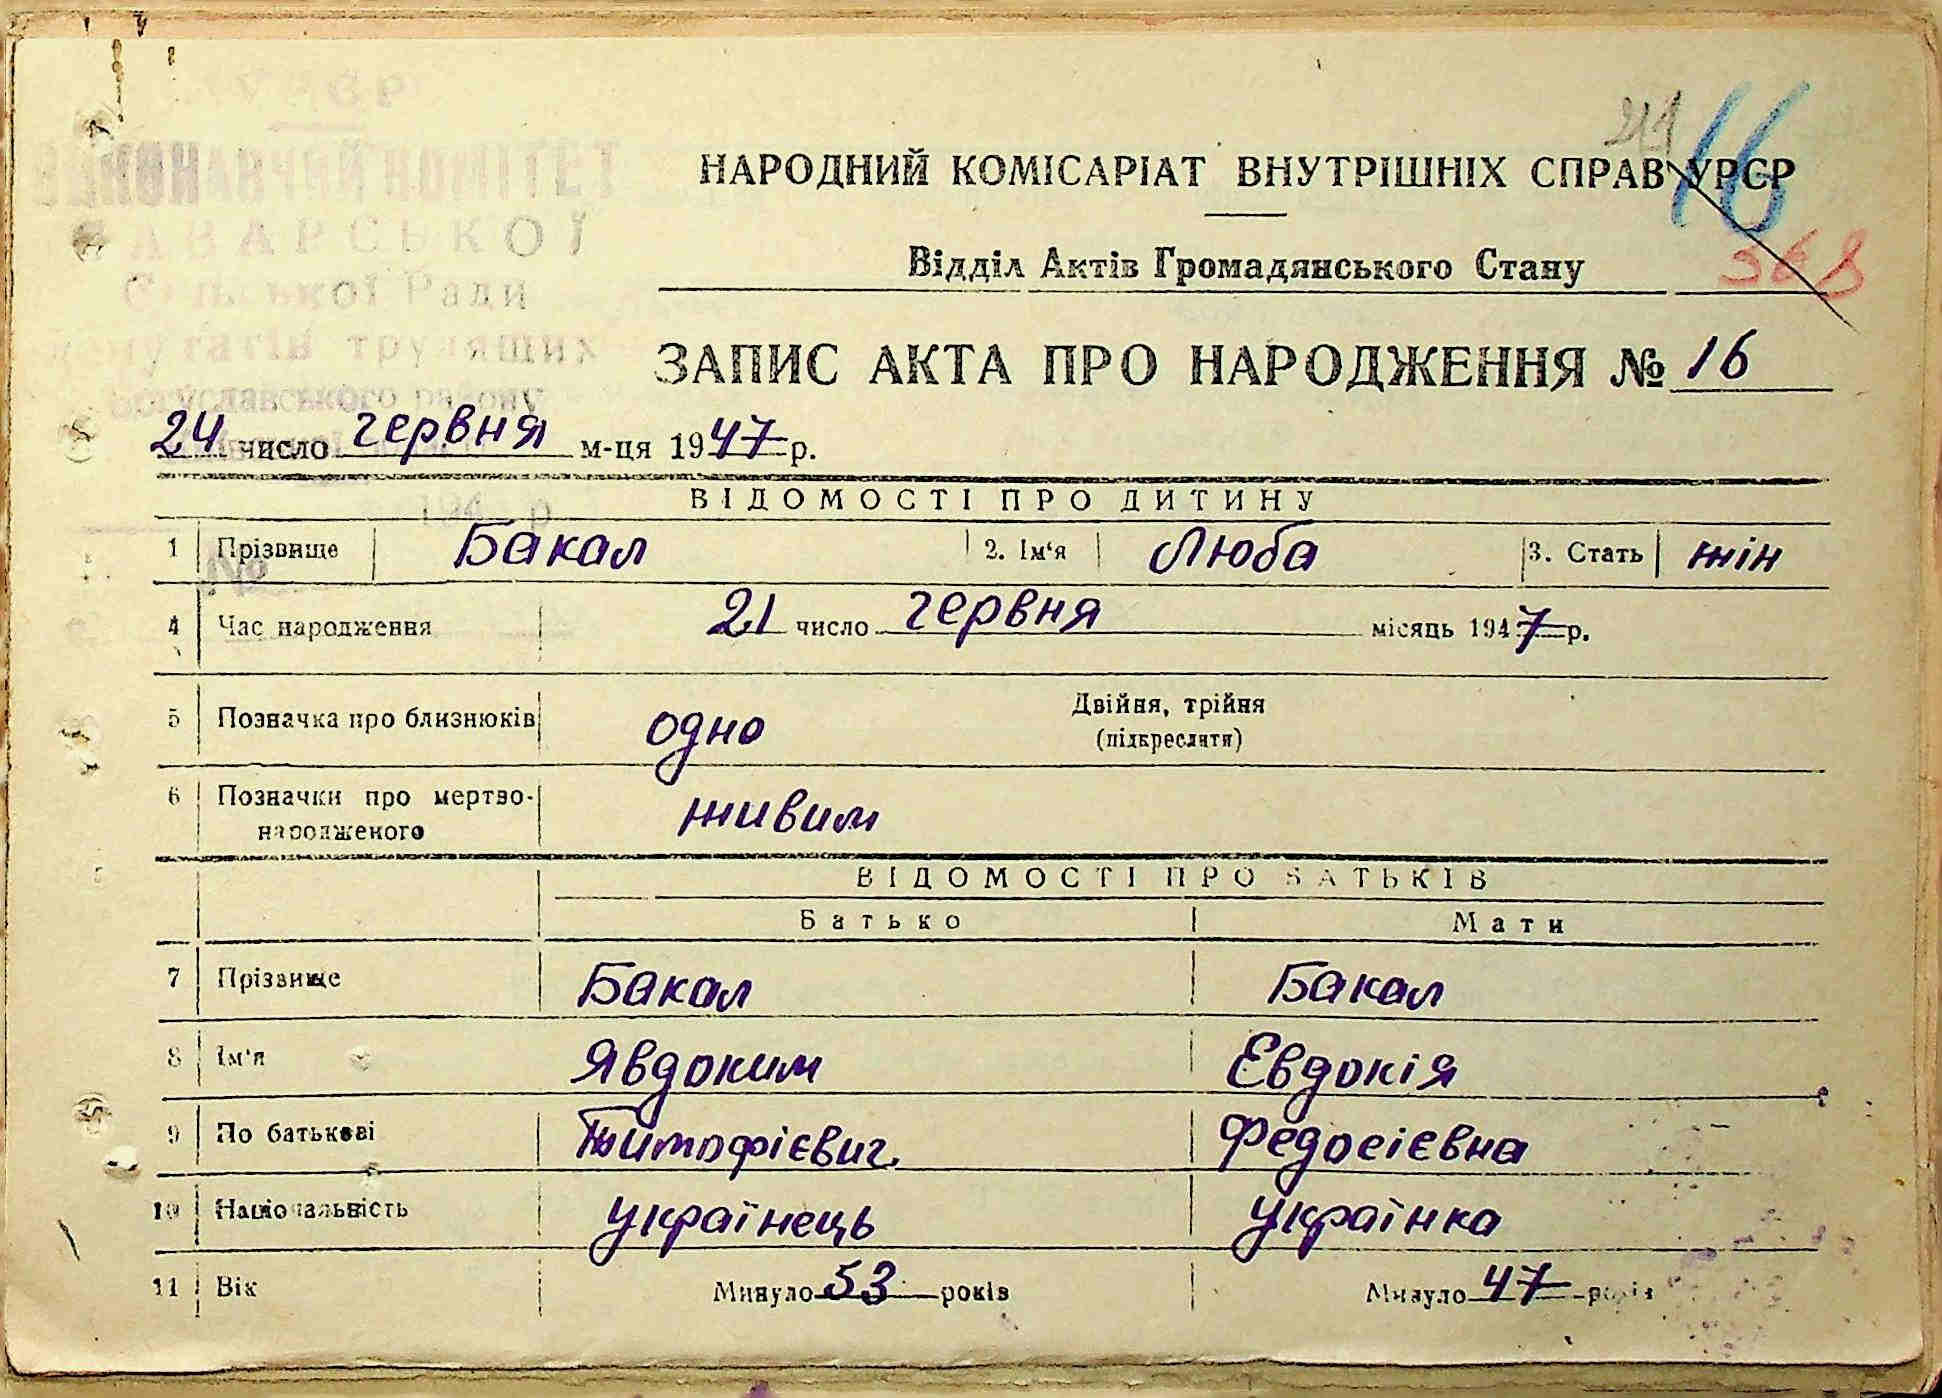 ВИКОНАВЧИЙ КОМІТЕТ
Сільської Ради
депутатів трудящих
Богуславського району
194 р
№
16
368
НАРОДНИЙ КОМІСАРІАТ ВНУТРІШНІХ СПРАВ УРСР
Відділ Актів Громадянського Стану
ЗАПИС АКТА ПРО НАРОДЖЕННЯ № 16
24 число червня м-ця 1947 р.
ВІДОМОСТІ ПРО ДИТИНУ
1 Прізвище Бакал 2. Ім'я Люба 3. Стать жін
4 Час народження 21 число червня місяць 1947 р.
5 Позначка про близнюків одно Двійня, трійня
(підкреслити)
6 Позначки про мертво-
народженого живим
ВІДОМОСТІ ПРО БАТЬКІВ
Батько Мати
7 Прізвище Бакал Бакал
8 Ім'я Явдоким Євдокія
9 По батькові Тимофієвич Федосієвна
10 Національність українець українка
11 Вік Минуло 53 років Минуло 47 років